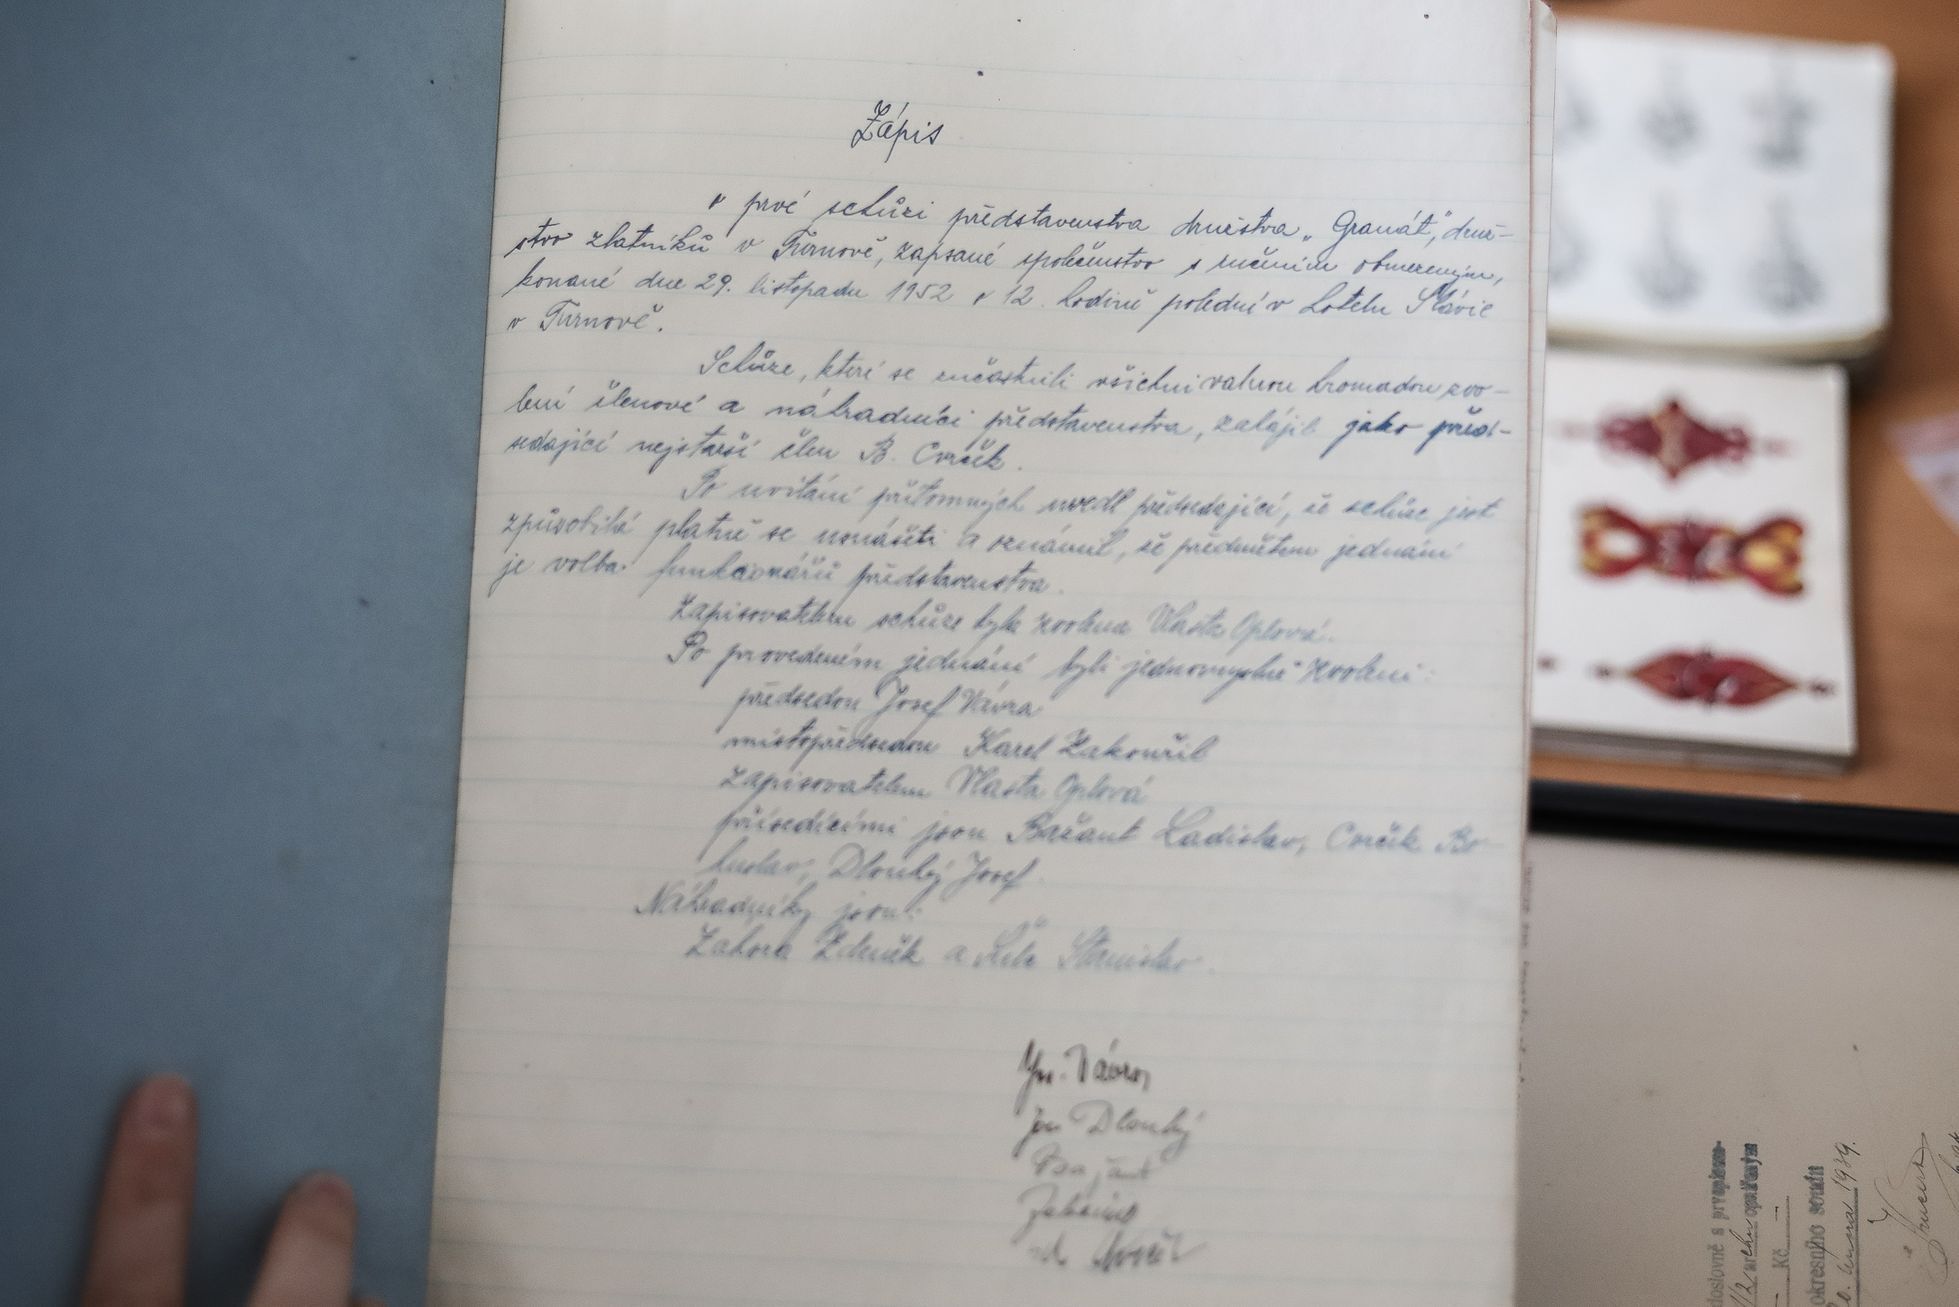 Zápis
o prvé schůzi představenstva družstva „Granát", druž-
stvo zlatníků v Turnově, zapsané společenstvo s ručením obmezeným,
konané dne 29. listopadu 1952 o 12. hodině polední v hotelu Slávie
v Turnově.
Schůze, které se zúčastnili všichni valnou hromadou zvo-
lení členové a náhradníci představenstva, zahájil jako před-
sedající nejstarší člen B. Cvrček.
Po uvítání přítomných uvedl předsedající, že schůze jest
způsobilá platně se usnášeti a oznámil, že předmětem jednání
je volba funkcionářů představenstva.
Zapisovatelem schůze byla zvolena Vlasta Oplová.
Po provedeném jednání byli jednomyslně zvoleni:
předsedou Josef Vávra
místopředsedou Karel Zakouřil
zapisovatelem Vlasta Oplová
přísedícími jsou Bažant Ladislav, Cvrček Bo-
huslav, Dlouhý Josef.
Náhradníky jsou:
Zahora Zdeněk a Stanislav.
Vávra
Jos Dlouhý
doslovně s
okresního soudu
1939.
Kč